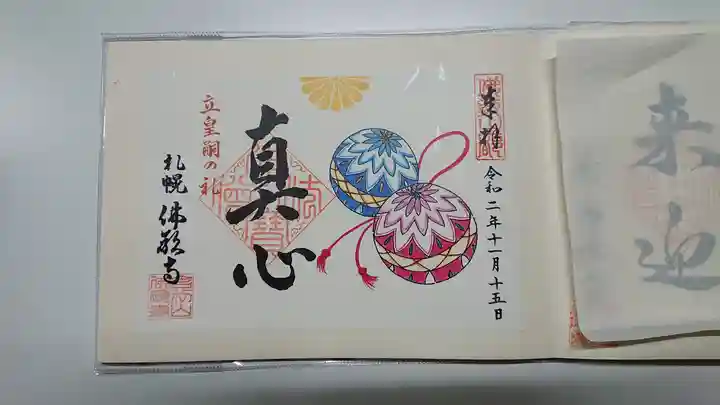 奉拝
令和二年十一月十五日
真心
立皇嗣の礼
札幌 佛願寺
来迎